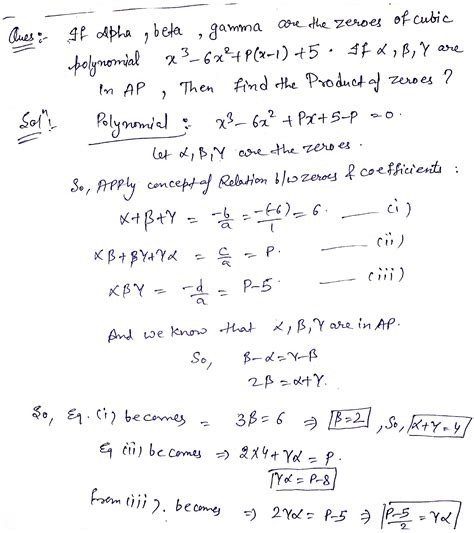 Ques :- If Alpha, beta, gamma are the zeroes of cubic
polynomial x³-6x²+P(x-1)+5. If α, β, γ are
in AP, Then find the Product of zeroes?
Solⁿ:- Polynomial : x³-6x²+Px+5-P=0.
let α, β, γ are the zeroes.
So, APPly concept of Relation b/w zeroes & coefficients :
α+β+γ = -b/a = -(-6)/1 = 6. —— (i)
αβ+βγ+γα = c/a = P. —— (ii)
αβγ = -d/a = P-5. —— (iii)
And we know that α, β, γ are in AP.
So, β-α=γ-β
2β=α+γ.
So, Eq. (i) becomes = 3β=6 ⇒ β=2, So, α+γ=4
Eq (ii) becomes ⇒ 2×4+γα=P.
γα=P-8
from (iii). becomes ⇒ 2γα=P-5 ⇒ P-5/2=γα